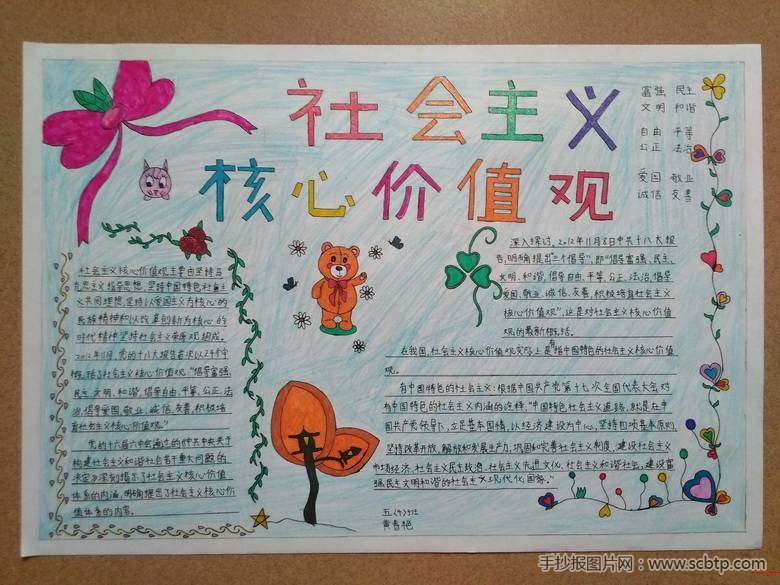 社会主义
核心价值观
富强 民主
文明 和谐
自由 平等
公正 法治
爱国 敬业
诚信 友善
社会主义核心价值观主要由坚持马
克思主义指导思想,坚持中国特色社会主
义共同理想,坚持以爱国主义为核心的
民族精神和以改革创新为核心的
时代精神坚持社会主义荣辱观组成。
2012年11月,党的十八大报告首次以24个字
概括了社会主义核心价值观:"倡导富强、
民主、文明、和谐,倡导自由、平等、公正、法
治,倡导爱国、敬业、诚信、友善,积极培育
社会主义核心价值观"
党的十六届六中全会通过的《中共中央关于
构建社会主义和谐社会若干重大问题的
决定》深刻揭示了社会主义核心价值
体系的内涵,明确提出了社会主义核心价
值体系的内容。
深入探讨,2012年11月8日中共十八大报
告,明确提出"三个倡导",即"倡导富强、民主、
文明、和谐,倡导自由、平等、公正、法治,倡导
爱国、敬业、诚信、友善,积极培育社会主义
核心价值观",这是对社会主义核心价值
观的最新概括。
在我国,社会主义核心价值观实际上是指中国特色的社会主义核心价值
观。
有中国特色的社会主义:根据中国共产党第十七次全国代表大会对
有中国特色的社会主义内涵的诠释,"中国特色社会主义道路,就是在中
国共产党领导下,立足基本国情,以经济建设为中心,坚持四项基本原则,
坚持改革开放,解放和发展生产力,巩固和完善社会主义制度,建设社会主义
市场经济、社会主义民主政治、社会主义先进文化、社会主义和谐社会,建设富
强民主文明和谐的社会主义现代化国家。"
五(4)班
黄春艳
手抄报图片网:www.scbtp.com